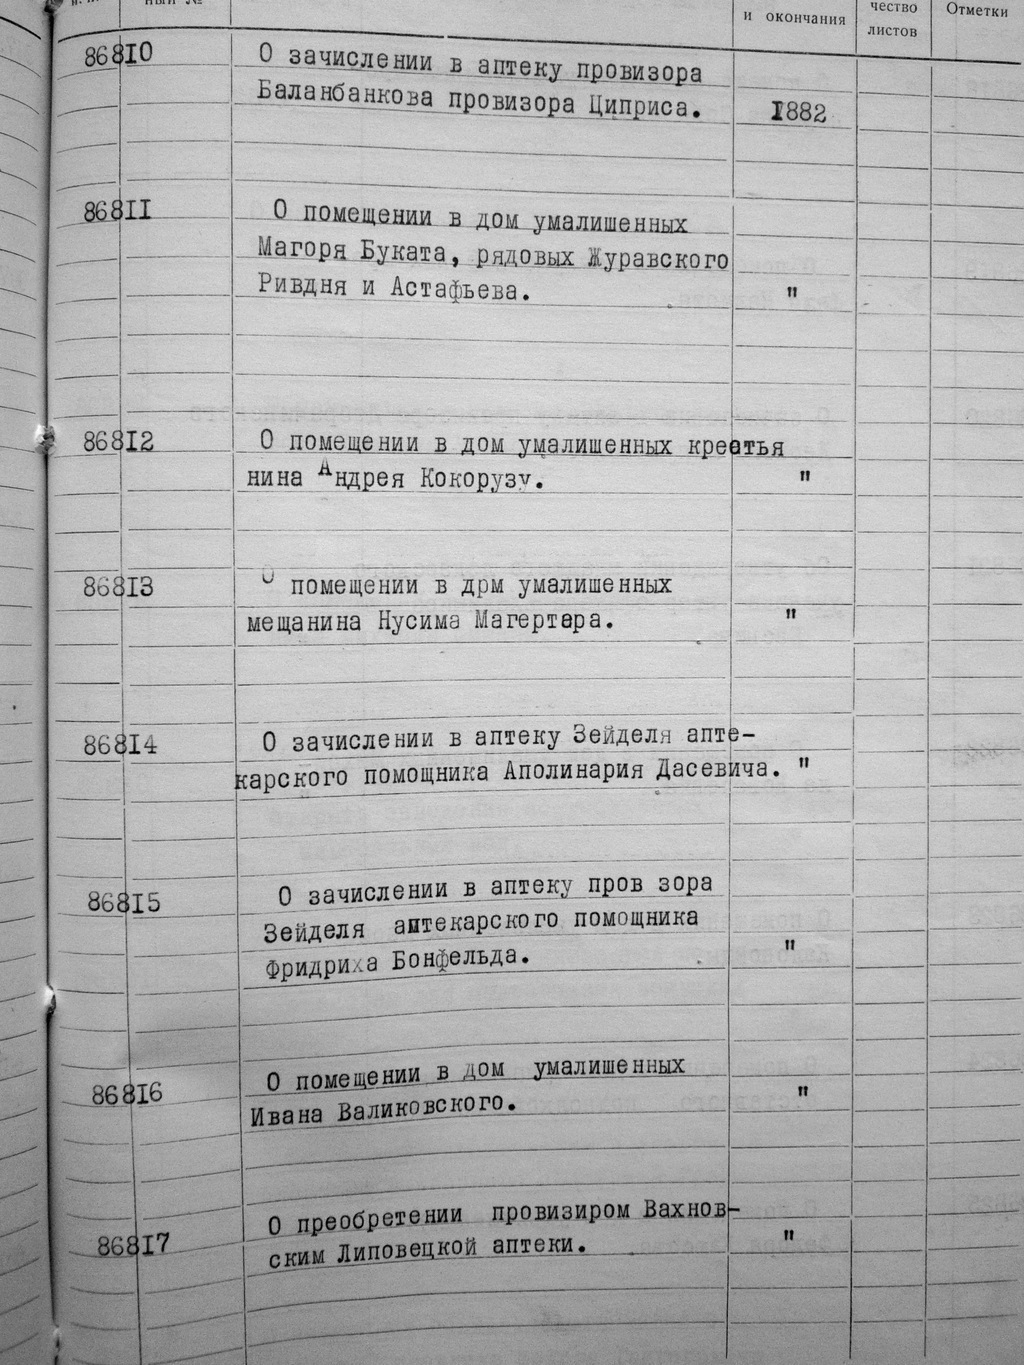 п. п.
ный №
и окончания
чество
листов
Отметки
86810
О зачислении в аптеку провизора
Баланбанкова провизора Циприса.
1882
86811
О помещении в дом умалишенных
Магоря Буката, рядовых Журавского
Ривдня и Астафьева.
"
86812
О помещении в дом умалишенных креатья
нина Андрея Кокорузу.
"
86813
О помещении в дрм умалишенных
мещанина Нусима Магертара.
"
86814
О зачислении в аптеку Зейделя апте-
карского помощника Аполинария Дасевича. "
86815
О зачислении в аптеку пров зора
Зейделя аптекарского помощника
Фридриха Бонфельда.
"
86816
О помещении в дом умалишенных
Ивана Валиковского.
"
86817
О преобретении провизиром Вахнов-
ским Липовецкой аптеки.
"